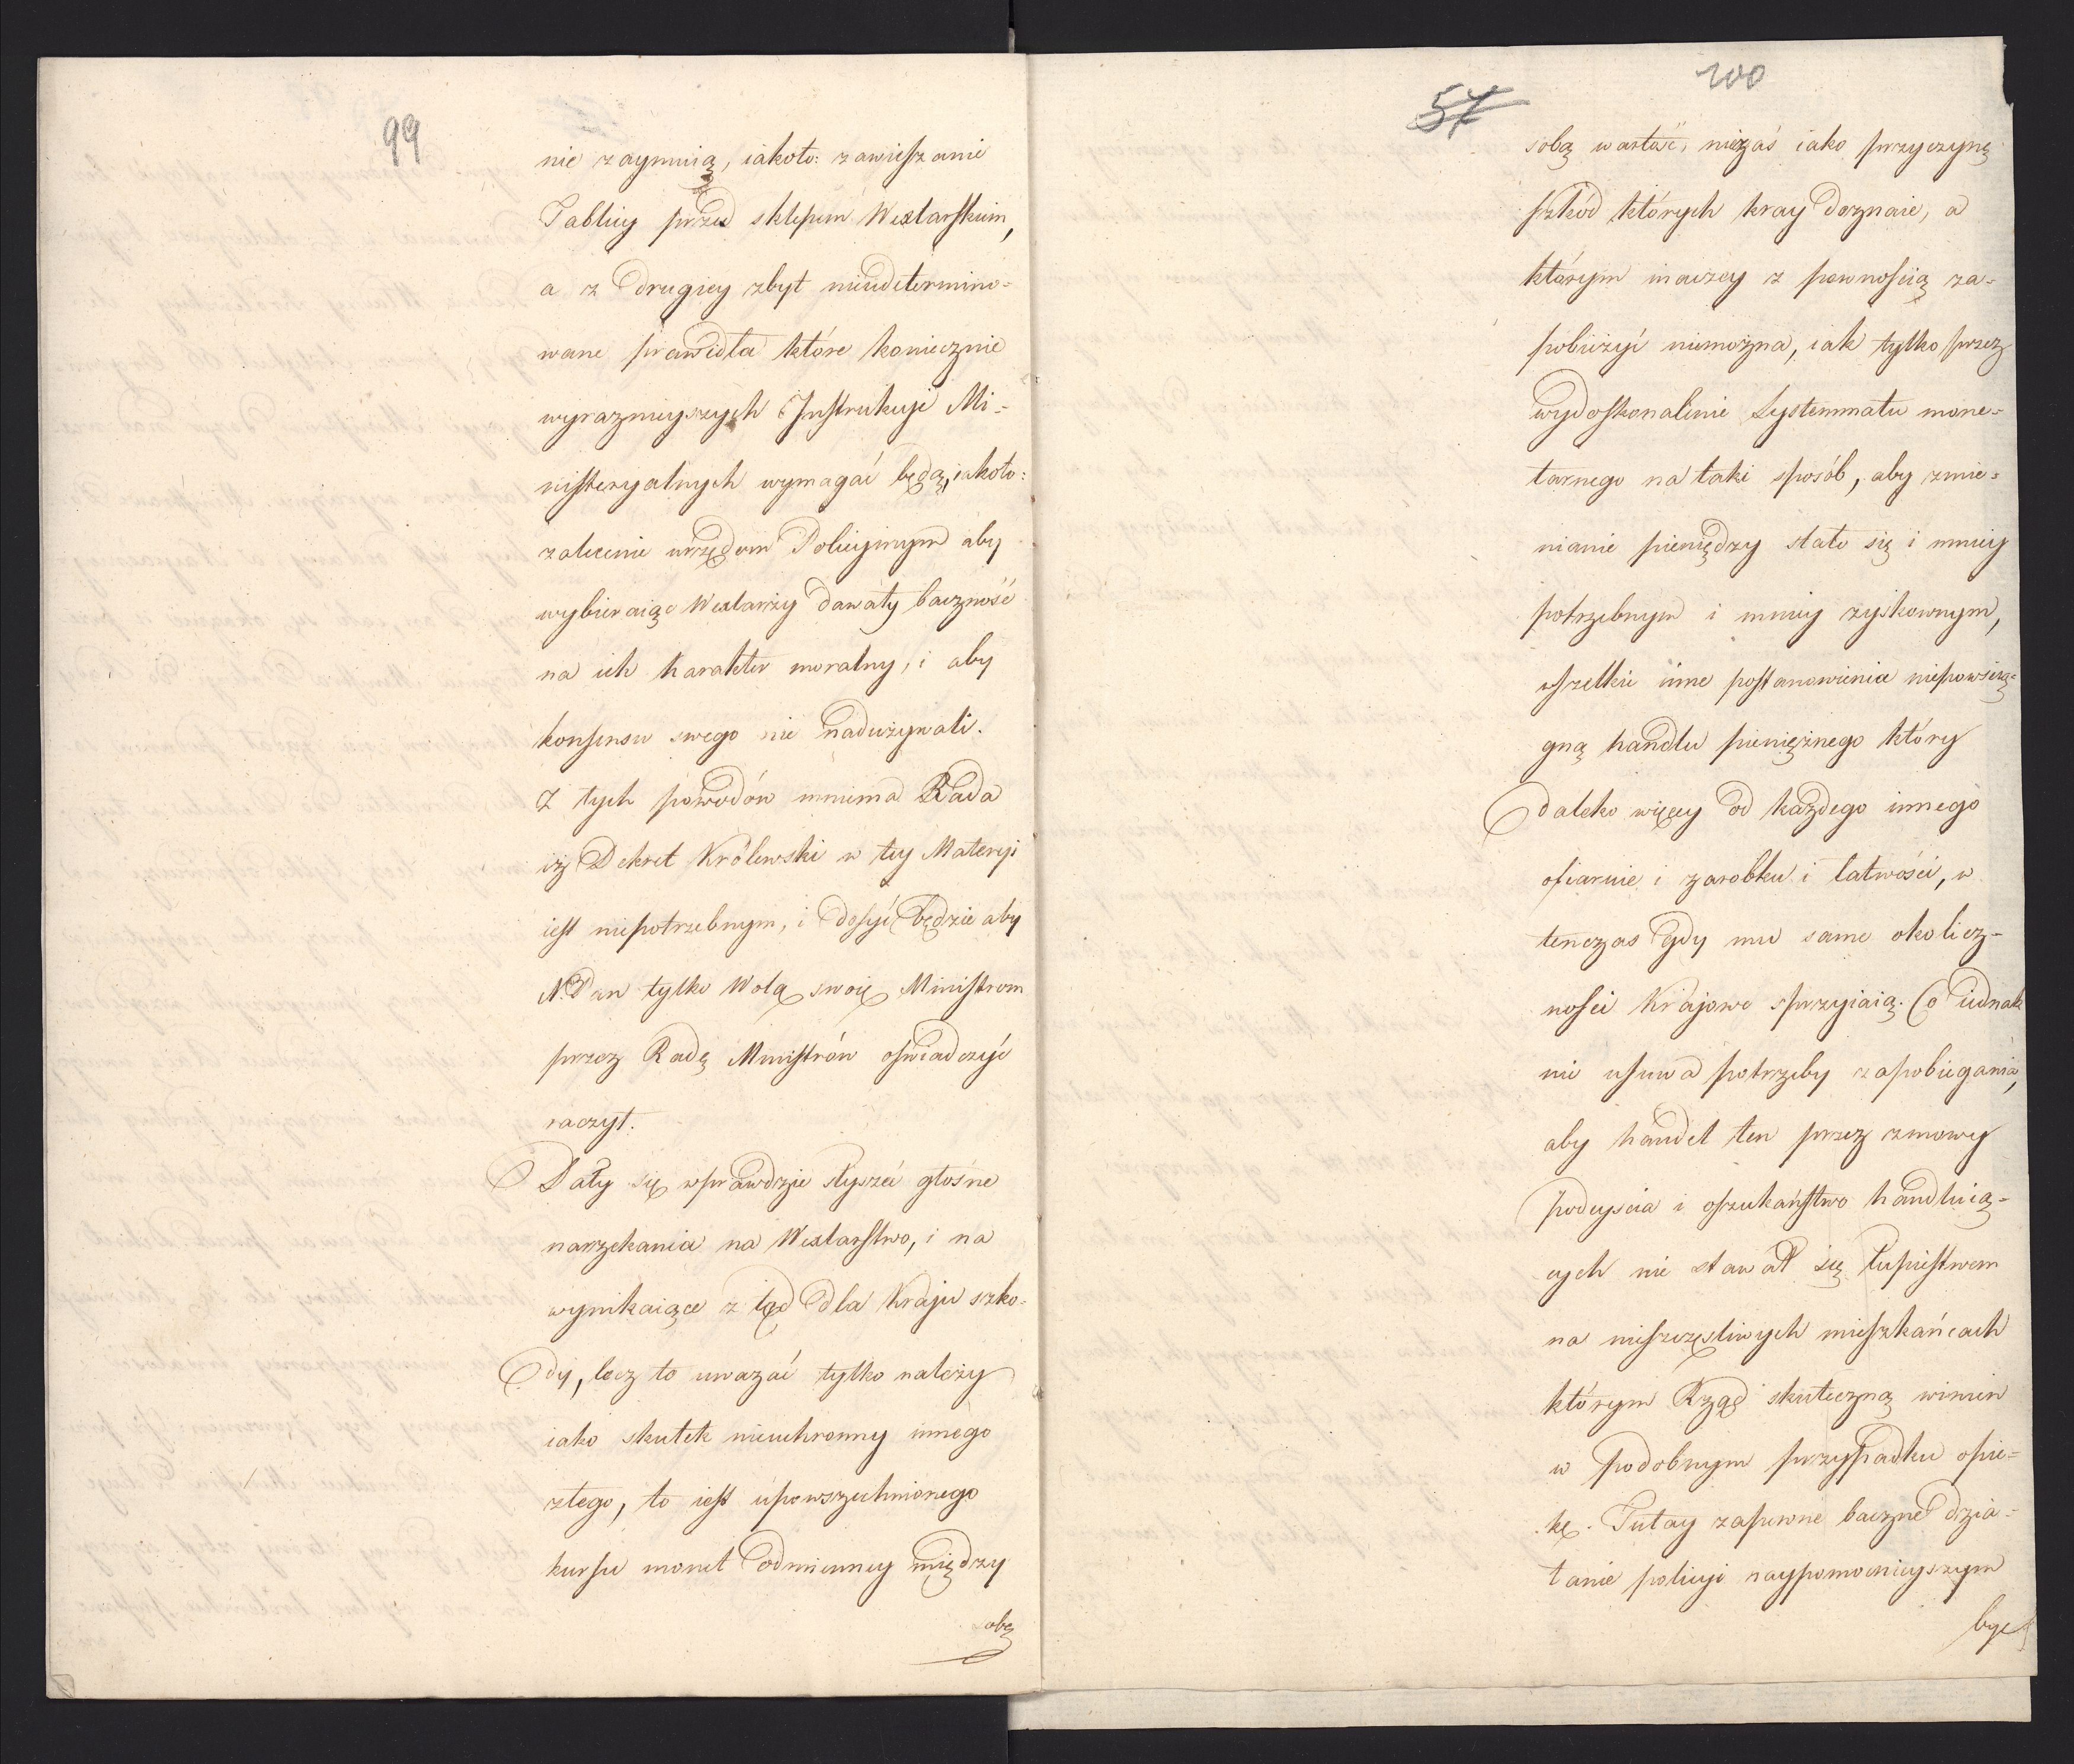 99
nie zaymuią, iakoto: zawieszanie
Tablicy przed sklepem Wexlarskim,
a z drugiey zbyt nieudetermino=
wane prawidła które koniecznie
wyrazmieyszych Instrukcyi Mi=
nisteryalnych wymagać będą, iakoto:
zalecenie urzędom Policyinym aby
wybieraiąc Wexlarzy dawały baczność
na ich karakter moralny, i aby
konsensu swego nie nadużywali.
Z tych powodów mniema Rada
iż Dekret Królewski w tey Materyi
iest niepotrzebnym, i dosyć będzie aby
N. Pan tylko Wolą swoię Ministrom
przez Radę Ministrów oświadczyć
raczył.
Dały się wprawdzie słyszeć głośne
narzekania na Wexlarstwo, i na
wynikaiące z tąd dla Kraju szko=
dy, lecz to uważać tylko należy
iako skutek nieuchronny innego
złego, to iest upowszechnionego
kursu monet odmienney między
sobą
57
100
sobą wartości, nieżaś iako przyczynę
szkód których kray doznaie, a
którym inaczey z pewnością za=
pobieżyć niemożna, iak tylko przez
wydoskonalenie Systemmatu mone=
tarnego na taki sposób, aby zmie=
nianie pieniędzy stało się i mniey
potrzebnym i mniey zyskownym,
wszelkie inne postanowienia niepowścią=
gną handlu pieniężnego który
daleko więcey od każdego innego
ofiaruie i zarobku i łatwości, w
tenczas gdy mu same okolicz=
ności Krajowe sprzyiaią. Co iednak
nie usuwa potrzeby zapobiegania,
aby handel ten przez zmowy
podeyscia i oszukaństwo handluią=
cych nie stawał się łupiestwem
na nieszczęśliwych mieszkańcach
którym Rząd skuteczną winien
w podobnym przypadku opie=
kę. Tutay zapewne baczne dzia=
łanie policyi naypomocnieyszym
być